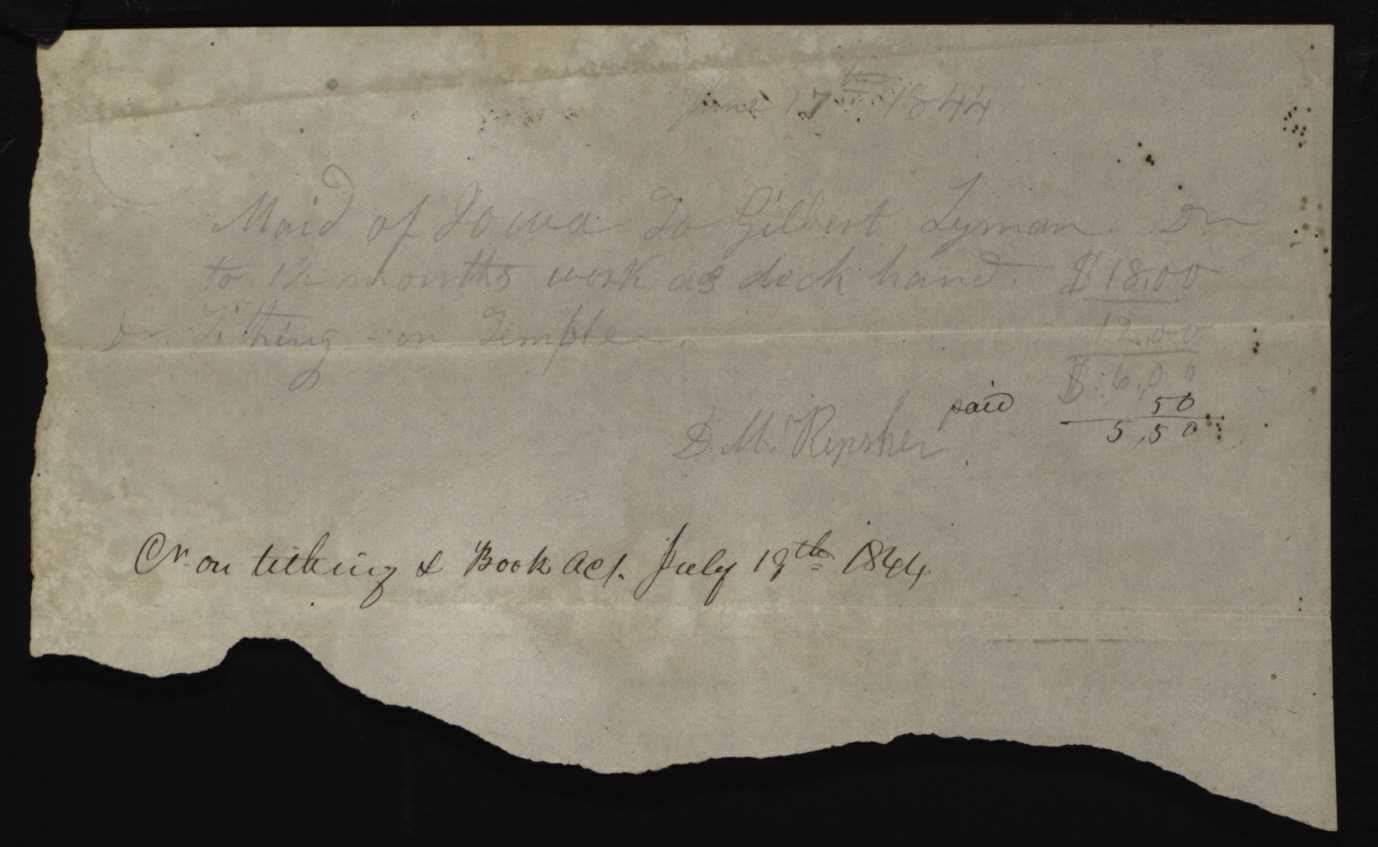 June 17th 1844
Maid of Iowa To Gilbert Lyman Dr
to 1½ months work as deck hand. $18.00
Dr. Tithing on Temple. 12.00
$ 6.00
paid 50
D. M. Repsher 5,50
Cr. on tithing & Book Act. July 19th 1844.